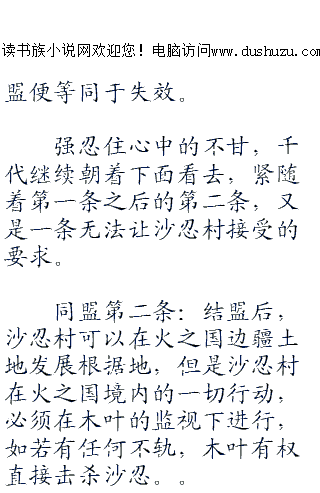 读书族小说网欢迎您！电脑访问www.dushuzu.com
盟便等同于失效。
强忍住心中的不甘，千
代继续朝着下面看去，紧随
着第一条之后的第二条，又
是一条无法让沙忍村接受的
要求。
同盟第二条：结盟后，
沙忍村可以在火之国边疆土
地发展根据地，但是沙忍村
在火之国境内的一切行动，
必须在木叶的监视下进行，
如若有任何不轨，木叶有权
直接击杀沙忍。。